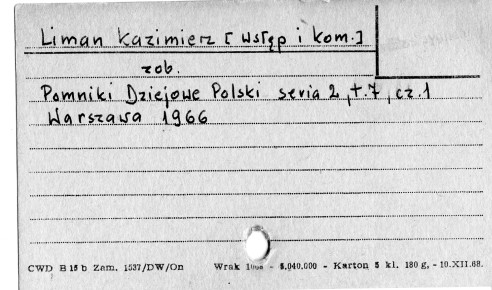 Liman Kazimierz [wstęp i kom.]
zob.
Pomniki Dziejowe Polski seria 2, t. 7, cz. 1
Warszawa 1966
CWD B 15 b Zam. 1537/DW/On Wrak - 5.040.000 - Karton 5 kl. 180 g, - 10.XII.68.